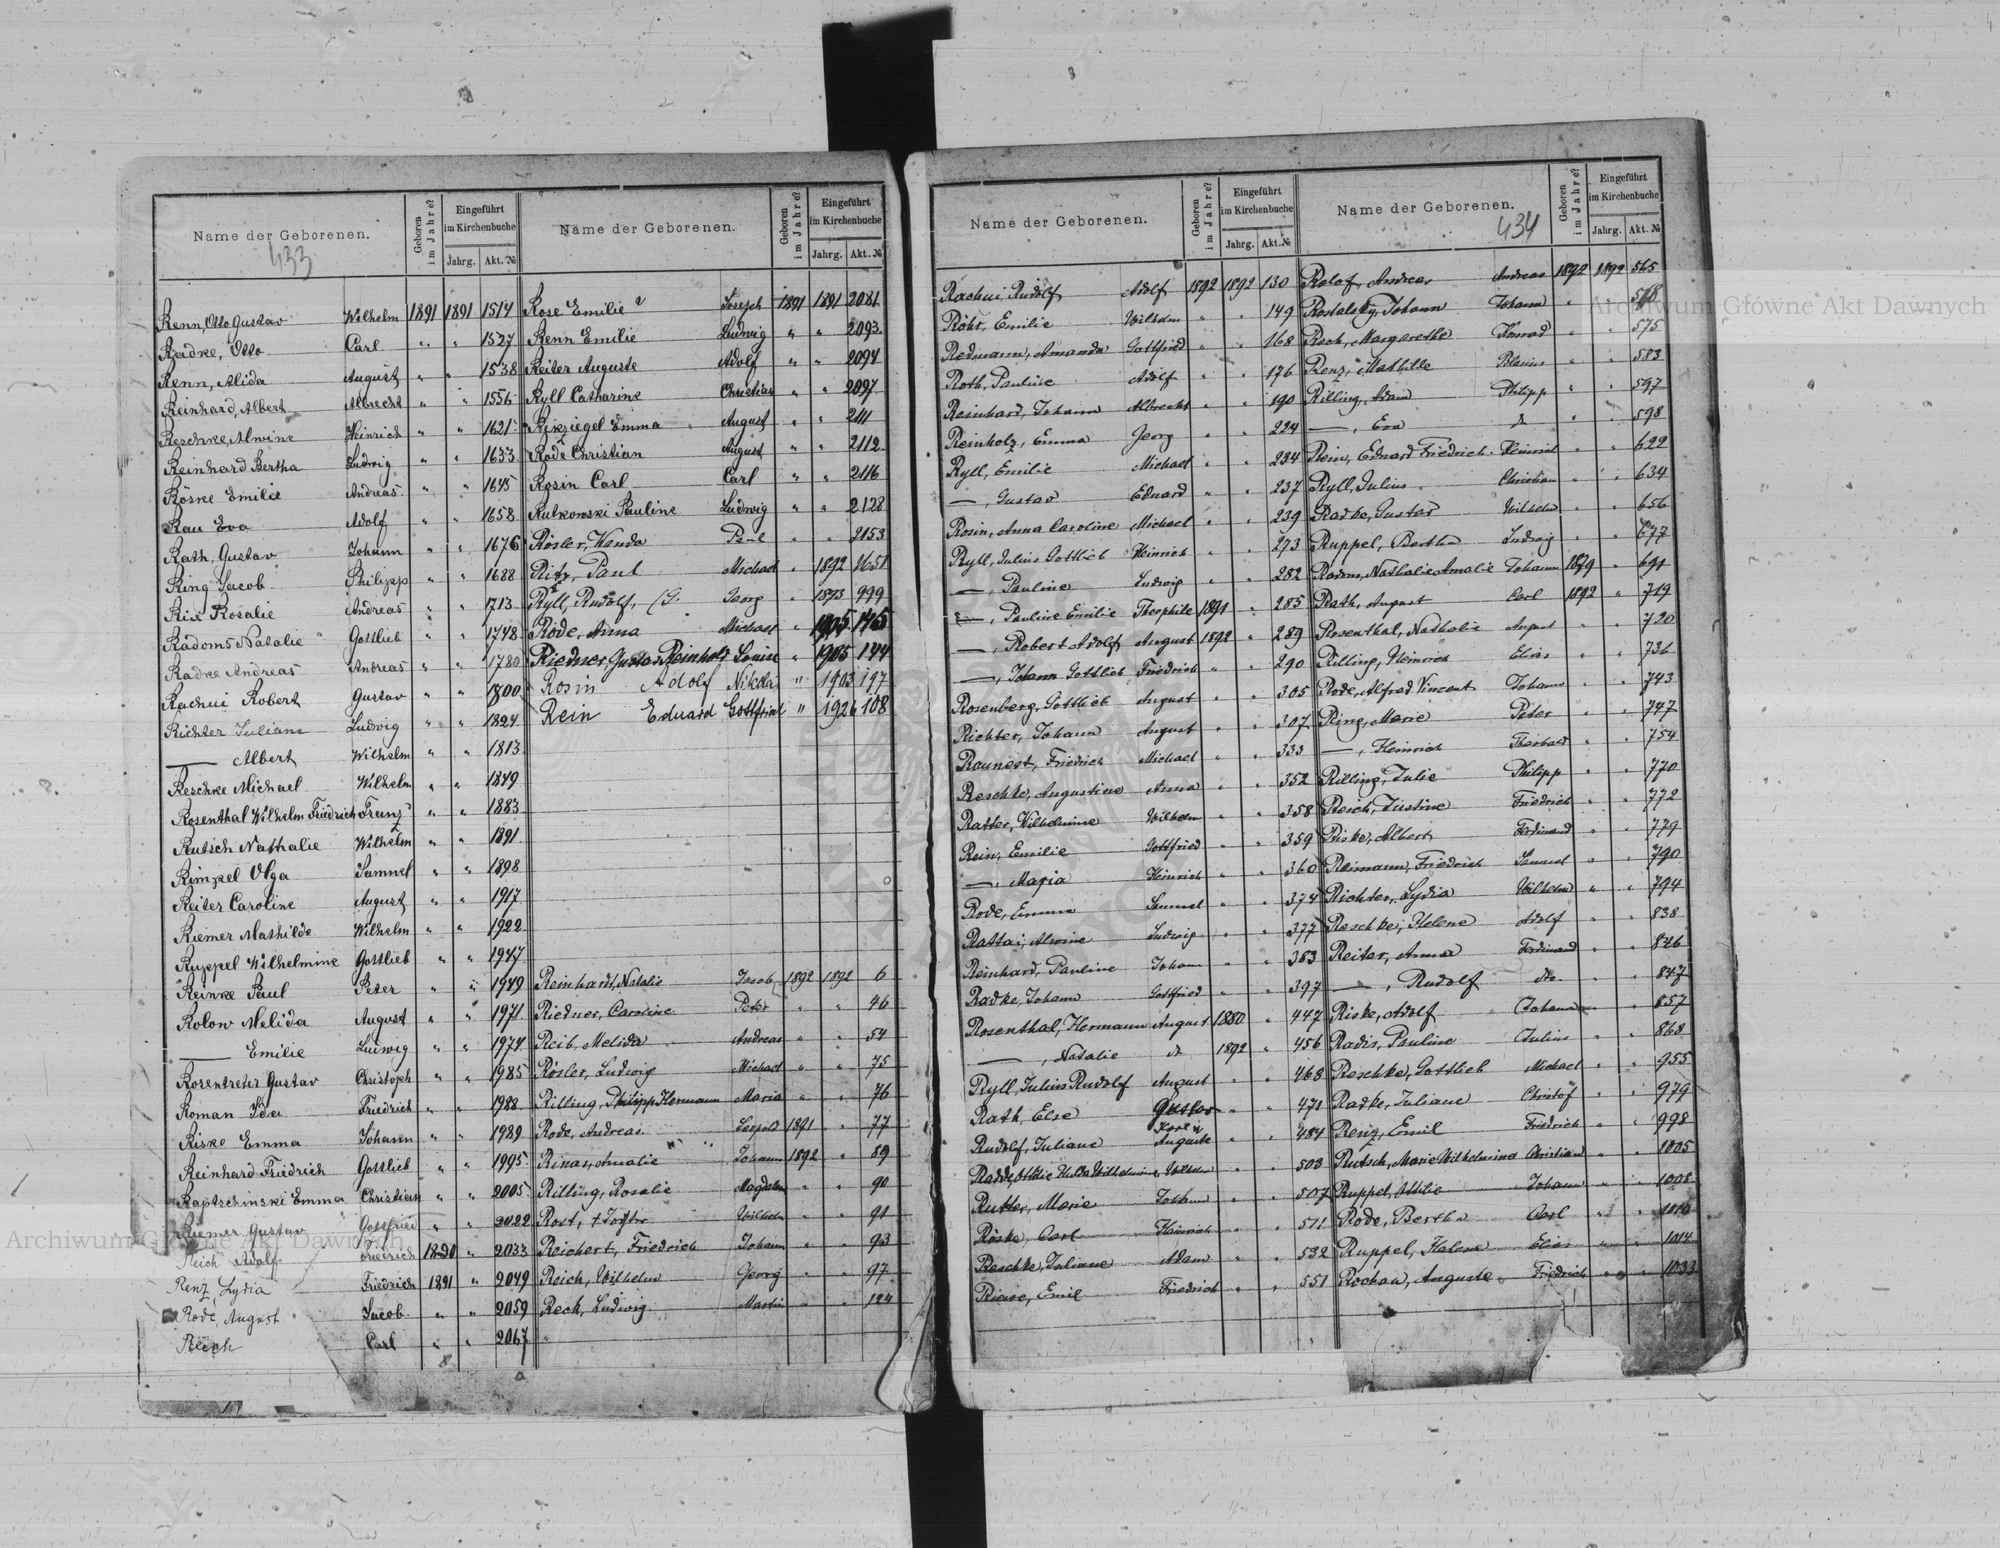 Name der Geborenen. Geboren im Jahre? Eingeführt im Kirchenbuche Jahrg. Akt. №
433
Renn, Otto Gustav Wilhelm 1891 1891 1514
Radke, Otto Carl " " 1527
Renn, Alida August " " 1538
Reinhard, Albert Albrecht " " 1556
Reschke, Alwine Heinrich " " 1621
Reinhard Bertha Ludwig " " 1633
Röske Emilie Andreas " " 1645
Rau Eva Adolf " " 1658
Rath, Gustav Johann " " 1676
Ring Jacob Philipp " " 1688
Rix Rosalie Andreas " " 1713
Radoms Natalie Gottlieb " " 1748
Radke Andreas Andreas " " 1780
Rachui Robert Gustav " " 1800
Richter Juliane Ludwig " " 1824
— Albert Wilhelm " " 1813
Reschke Michael Wilhelm " " 1849
Rosenthal Wilhelm Friedrich Franz " " 1883
Rutsch Nathalie Wilhelm " " 1891
Rimpel Olga Samuel " " 1898
Reiter Caroline August " " 1917
Riemer Mathilde Wilhelm " " 1922
Ruppel Wilhelmine Gottlieb " " 1947
Reinke Paul Peter " " 1949
Rolow Melida August " " 1971
— Emilie Ludwig " " 1974
Rosentreter Gustav Christoph " " 1985
Roman Ida Friedrich " " 1988
Riske Emma Johann " " 1989
Reinhard Friedrich Gottlieb " " 1995
Raptschinski Emma Christian " " 2005
Riemer Gustav Gottfried " " 2022
Reich Adolf Friedrich 1890 " 2033
Renz Lydia Friedrich 1891 " 2049
Rode, August Jacob " " 2059
Reich Carl " " 2067
Name der Geborenen. Geboren im Jahre? Eingeführt im Kirchenbuche Jahrg. Akt. №
Rose Emilie Joseph 1891 1891 2081
Renn Emilie Ludwig " " 2093
Reiter Auguste Adolf " " 2094
Ryll Catharine Christian " " 2097
Rikziegel Emma August " 2111
Rode Christian August " " 2112
Rosin Carl Carl " " 2116
Rutkowski Pauline Ludwig " " 2128
Rösler, Wanda Paul " " 2153
Ritz, Paul Michael " 1892 1651
Ryll, Rudolf, Georg " 1893 999
Rode, Anna Michael " 1905 145
Riedner, Gustav Reinhold Louise " 1905 144
Rosin Adolf Nikolai " 1903 197
Rein Eduard Gottfried " 1926 108
Reinhard, Natalie Jacob 1892 1892 6
Riedner, Caroline Peter " " 46
Reib, Melida Andreas " " 54
Rösler, Ludwig Michael " " 75
Rilling, Philipp Hermann Maria " " 76
Rode, Andreas Leopold 1891 " 77
Rinas, Amalie Johann 1892 " 89
Rilling, Rosalie Magdalena 90
Rost, Wilhelm 91
Reichert, Friedrich Johann " " 93
Reich, Wilhelm Georg " " 97
Rech, Ludwig Martin " " 124
Name der Geborenen. Geboren im Jahre? Eingeführt im Kirchenbuche Jahrg. Akt. №
Rachui, Rudolf Adolf 1892 1892 130
Röhr, Emilie Wilhelm " " 149
Redmann, Amanda Gottfried " " 168
Roth, Pauline Adolf " " 176
Reinhard, Johann Albrecht " " 190
Reinholz, Emma Georg " " 224
Ryll, Emilie Michael " " 234
—, Gustav Eduard " " 237
Rosin, Anna Caroline Michael " " 239
Ryll, Julius Gottlieb Heinrich " " 273
—, Pauline Ludwig " " 282
—, Pauline Emilie Theophile 1891 " 285
—, Robert Adolf August 1892 " 289
—, Johann Gottlieb Friedrich " " 290
Rosenberg, Gottlieb August " " 305
Richter, Johann August " " 307
Raunest, Friedrich Michael " " 333
Reschke, Augustine Anna " " 352
Ratter, Wilhelmine Wilhelm " " 358
Rein, Emilie Gottfried " " 359
—, Maria Heinrich " " 360
Rode, Emma Samuel " " 374
Rattai, Alwine Ludwig " " 377
Reinhard, Pauline Johann " " 383
Radke, Johann Gottfried " " 397
Rosenthal, Hermann August 1880 " 447
—, Natalie 1892 " 456
Ryll, Julius Rudolf August " " 468
Rath Else Gustav " " 471
Rudolf, Juliane August " " 484
Wilhelm " " 503
Rutter, Marie Johann " " 507
Röske, Carl Heinrich " " 511
Reschke, Juliane Adam " " 532
Riese, Emil Friedrich " " 551
Name der Geborenen. Geboren im Jahre? Eingeführt im Kirchenbuche Jahrg. Akt. №
434
Rolof, Andreas Andreas 1892 1892 565
Rostalsky, Johann Johann " 568
Resch, Margarethe Konrad " " 575
Renz, Mathilde Blasius " " 583
Rilling, Adam Philipp " " 597
—, Eva " 598
Rein, Eduard Friedrich Heinrich " " 622
Ryll, Julius Christian " " 634
Radke, Gustav Wilhelm " " 656
Ruppel, Bertha Ludwig " " 677
Radoms, Nathalie Amalie Johann 1879 " 691
Rath, August Carl 1892 " 719
Rosenthal, Nathalie August " " 720
Rilling, Heinrich Elias " " 736
Rode, Alfred Vincent Johann " " 743
Ring, Marie Peter " " 747
—, Heinrich " " 754
Rilling, Julie Philipp " " 770
Resch, Justine Friedrich " " 772
Riske, Albert Ferdinand " " 779
Reimann, Friedrich Samuel " " 790
Richter, Lydia Wilhelm " " 794
Reschke, Helene Adolf " " 838
Reiter, Anna Ferdinand " " 846
—, Rudolf do. " " 847
Riske, Adolf Johann " " 857
Radis, Pauline Julius " " 868
Reschke, Gottlieb Michael " " 955
Radke, Juliane Christof " " 979
Renz, Emil Friedrich " " 998
Rutsch, Marie Wilhelmine Christian " " 1005
Ruppel, Ottilie Johann " " 1008
Rode, Bertha Carl " " 1010
Ruppel, Helene Elias " " 1014
Rochaw, Auguste Friedrich " " 1033
Archiwum Główne Akt Dawnych
Archiwum Główne Akt Dawnych